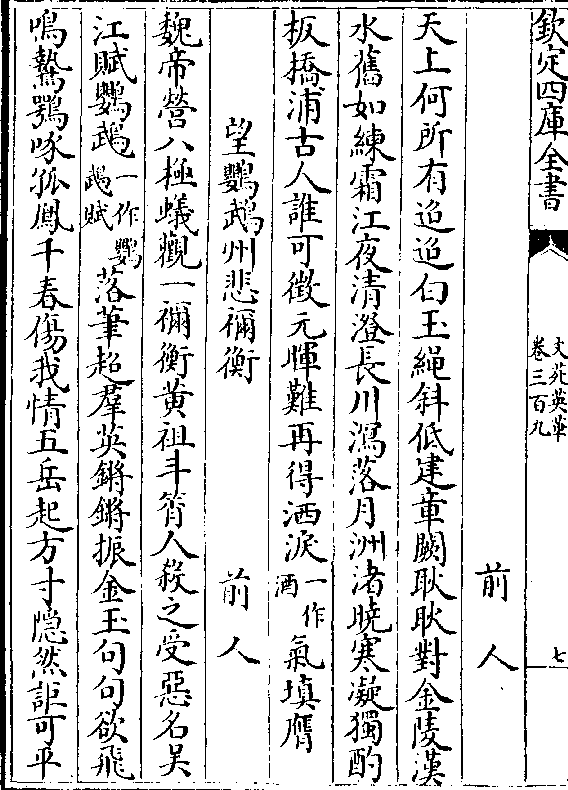 欽定四庫全書
文苑英華
卷三百九
七
前人
天上何所有迢迢白玉繩斜低建章闕耿耿對金陵漢
水舊如練霜江夜清澄長川瀉落月洲渚曉寒凝獨酌
板橋浦古人誰可徵元暉難再得洒淚一作酒氣填膺
望鸚鵡州悲禰衡
前人
魏帝營八極蟻觀一禰衡黄祖斗筲人殺之受惡名吳
江賦鸚鵡一作鸚鵡賦落筆超羣英鏘鏘振金玉句句欲飛
鳴鷙鶚啄孤鳳千春傷我情五岳起方寸隠然詎可平